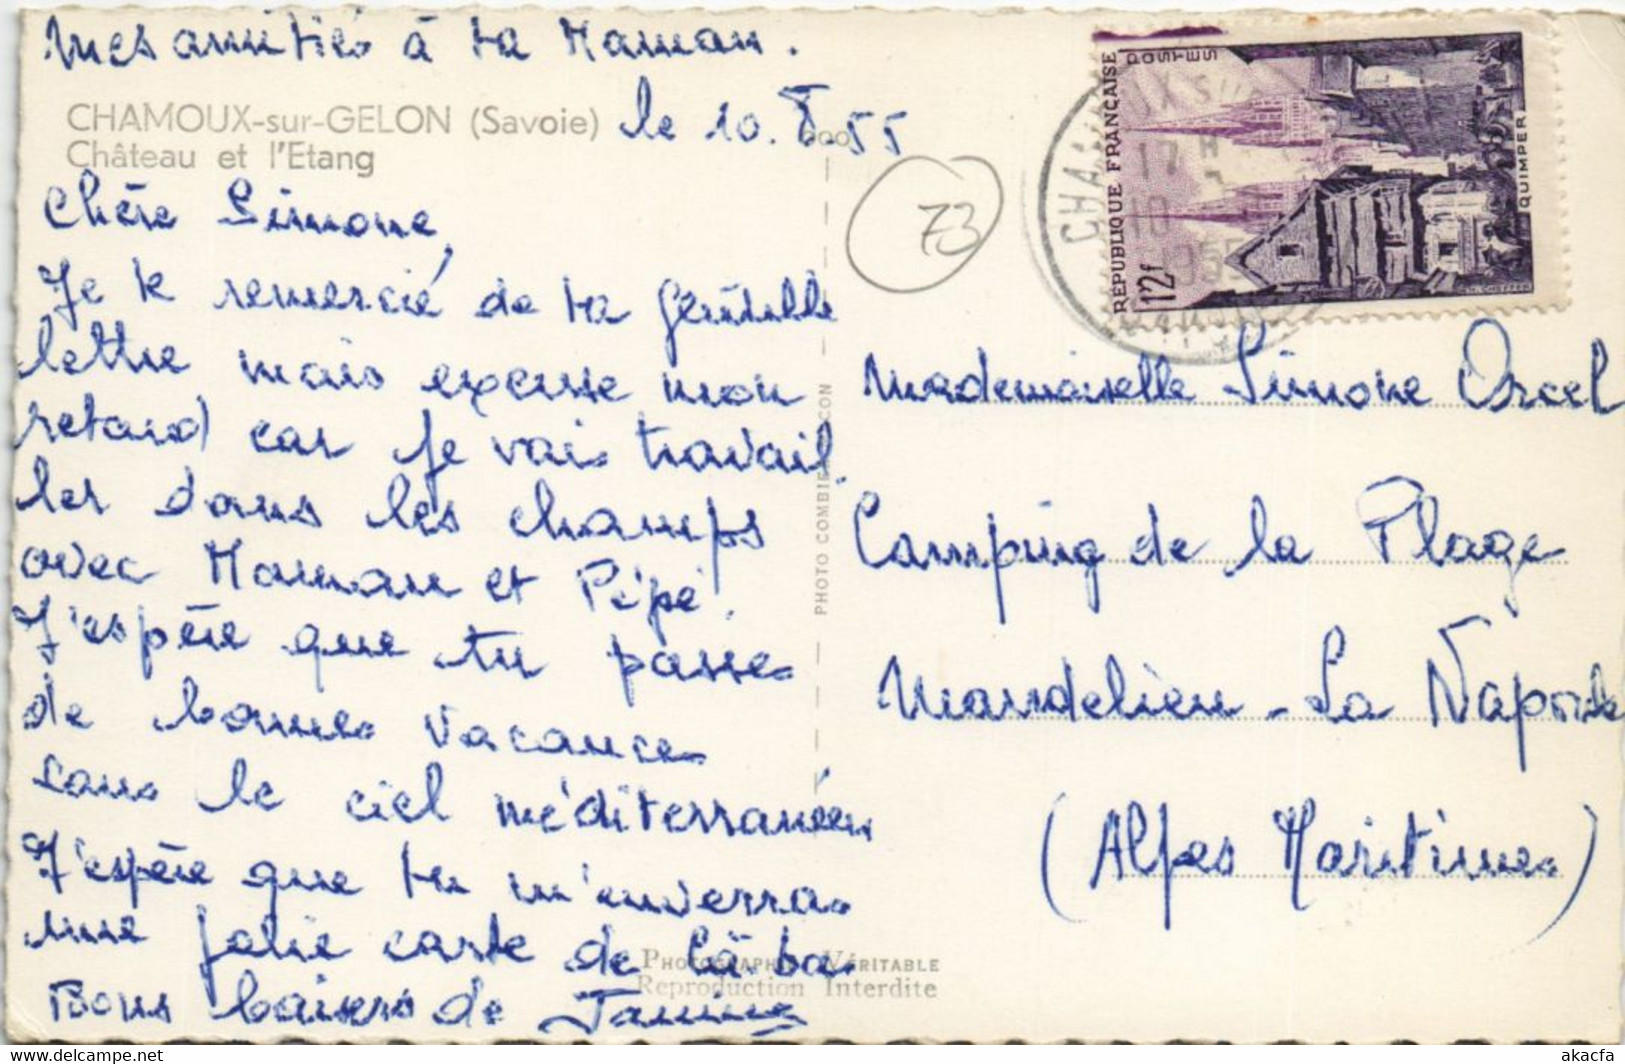 Mes amitiés à ta Maman.
CHAMOUX-sur-GELON (Savoie)
Château et l'Etang
le 10.8.55
Chère Simone,
Je te remercie de ta gentille
lettre mais excuse mon
retard car je vais travail
ler dans les champs
avec Maman et Pépé.
J'espère que tu passes
de bonnes vacances
sous le ciel méditerranéen
J'espère que tu m'enverras
une jolie carte de là-bas
Bons baisers de Janine
PHOTO COMBIER MACON
PHOTOGRAPHIE VÉRITABLE
Reproduction Interdite
73
RÉPUBLIQUE FRANÇAISE
POSTES
12f
QUIMPER
CHAMOUX SUR
17 H
10
1955
Mademoiselle Simone Orcel
Camping de la Plage
Mandelieu-La Napoule
(Alpes Maritimes)
akacfa